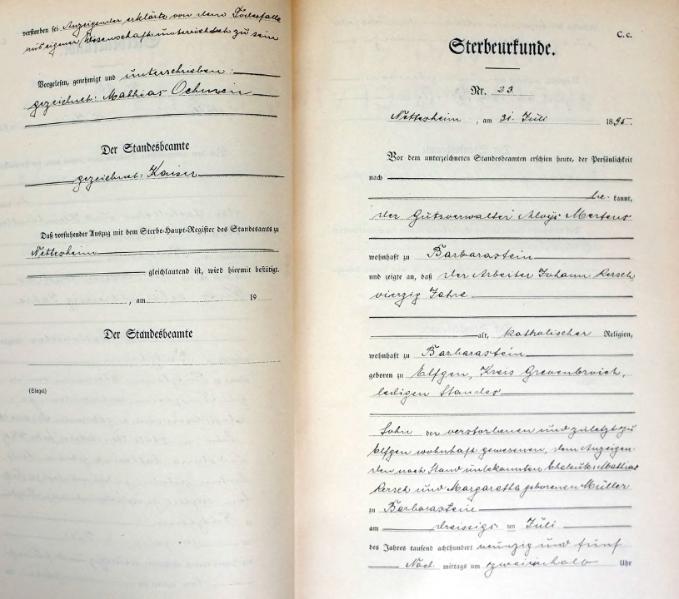 verstorben sei. Anzeigender erklärte von dem Todesfalle
aus eigener Wissenschaft unterrichtet zu sein
Vorgelesen, genehmigt und unterschrieben:
gezeichnet: Mathias
Der Standesbeamte
gezeichnet: Kaiser
Daß vorstehender Auszug mit dem Sterbe-Haupt-Register des Standesamts zu
Nettersheim
gleichlautend ist, wird hiermit bestätigt.
, am 19
Der Standesbeamte
(Siegel)
C. c.
Sterbeurkunde.
Nr. 23
Nettersheim, am 31. Juli 1895.
Vor dem unterzeichneten Standesbeamten erschien heute, der Persönlichkeit
nach
be kannt,
der Gutsverwalter Aloys Mertens
wohnhaft zu Barbarastein
und zeigte an, daß der Arbeiter Johann Kersch
vierzig Jahre
alt, katholischer Religion,
wohnhaft zu Barbarastein
geboren zu Elfgen, Kreis Grevenbroich,
ledigen Standes
Sohn der verstorbenen und zuletzt zu
Elfgen wohnhaft gewesenen, dem Anzeigen-
den nach Stand unbekannten Eheleute Mathias
Kersch und Margaretha geborenen Müller
zu Barbarastein
am dreissigs ten Juli
des Jahres tausend achthundert neunzig und fünf
Nach mittags um zweieinhalb Uhr